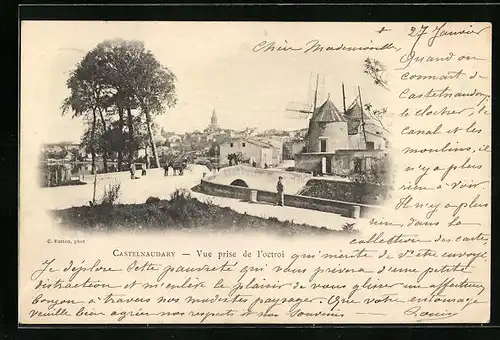 27 Janvier
Chère Mademoiselle,
Quand on
connait de
Castelnaudary
le clocher, le
canal et les
moulins, il
n'y a plus
rien à voir.
Il n'y a plus
rien, dans la
collection des cartes,
C. Fatton, phot
CASTELNAUDARY — Vue prise de l'octroi
qui mérite de v. être envoyé.
Je déplore cette pauvreté qui vous privera d'une petite
distraction et m'enlève le plaisir de vous glisser un affectueux
bonjour à travers nos modestes paysages. Que votre entourage
veuille bien agréer nos respects et nos souvenirs —